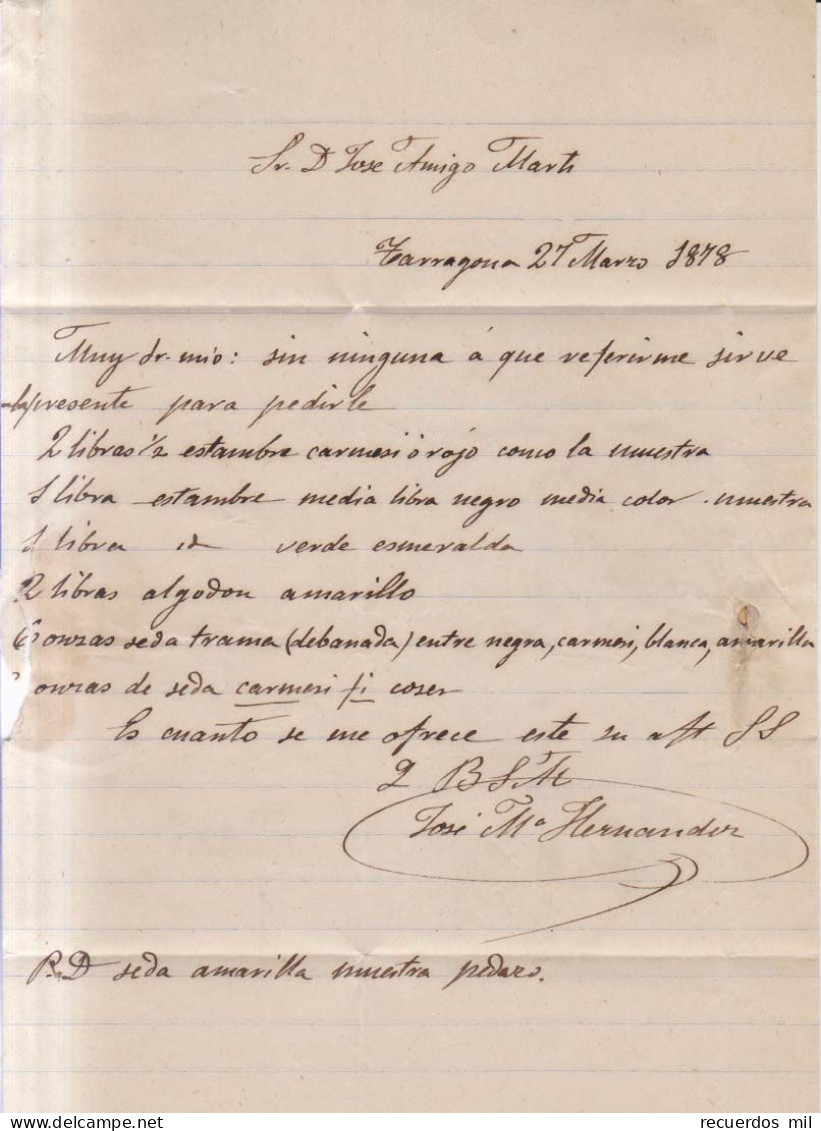 Sr. D Jose Amigo Marti
Tarragona 27 Marzo 1878
Muy Sr. mio: sin ninguna á que referirme sirve
la presente para pedirle
2 libras 1/2 estambre carmesi ó rojo como la muestra
1 libra estambre media libra negro media color muestra
1 libra id verde esmeralda
2 libras algodon amarillo
6 onzas seda trama (debanada) entre negra, carmesi, blanca, amarilla
onzas de seda carmesi coser
Es cuanto se me ofrece este su aft SS
Q B S M
José Mª Hernandez
P.D seda amarilla muestra pedazo.
recuerdos mil